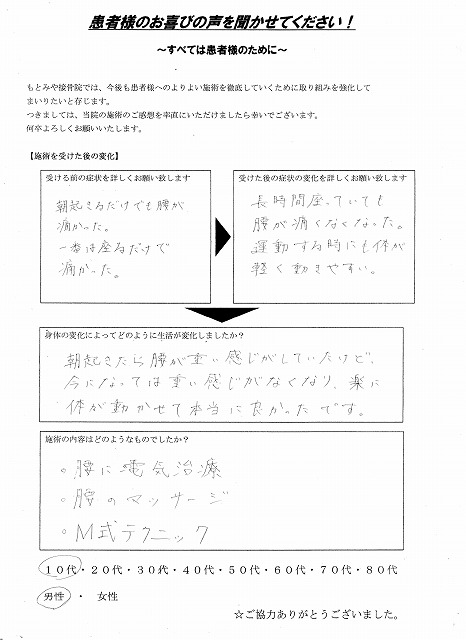 患者様のお喜びの声を聞かせてください！
～すべては患者様のために～
もとみや接骨院では、今後も患者様へのよりよい施術を徹底していくために取り組みを強化して
まいりたいと存じます。
つきましては、当院の施術のご感想を率直にいただけましたら幸いでございます。
何卒よろしくお願いいたします。
【施術を受けた後の変化】
受ける前の症状を詳しくお願い致します
朝起きるだけでも腰が
痛かった。
一番は座るだけで
痛かった。
受けた後の症状の変化を詳しくお願い致します
長時間座っていても
腰が痛くなくなった。
運動する時にも体が
軽く動きやすい。
身体の変化によってどのように生活が変化しましたか？
朝起きたら腰が重い感じがしていたけど、
今になっては重い感じがなくなり、楽に
体が動かせて本当に良かったです。
施術の内容はどのようなものでしたか？
。腰に電気治療
。腰のマッサージ
。M式テクニック
１０代・２０代・３０代・４０代・５０代・６０代・７０代・８０代
男性 ・ 女性
☆ご協力ありがとうございました。